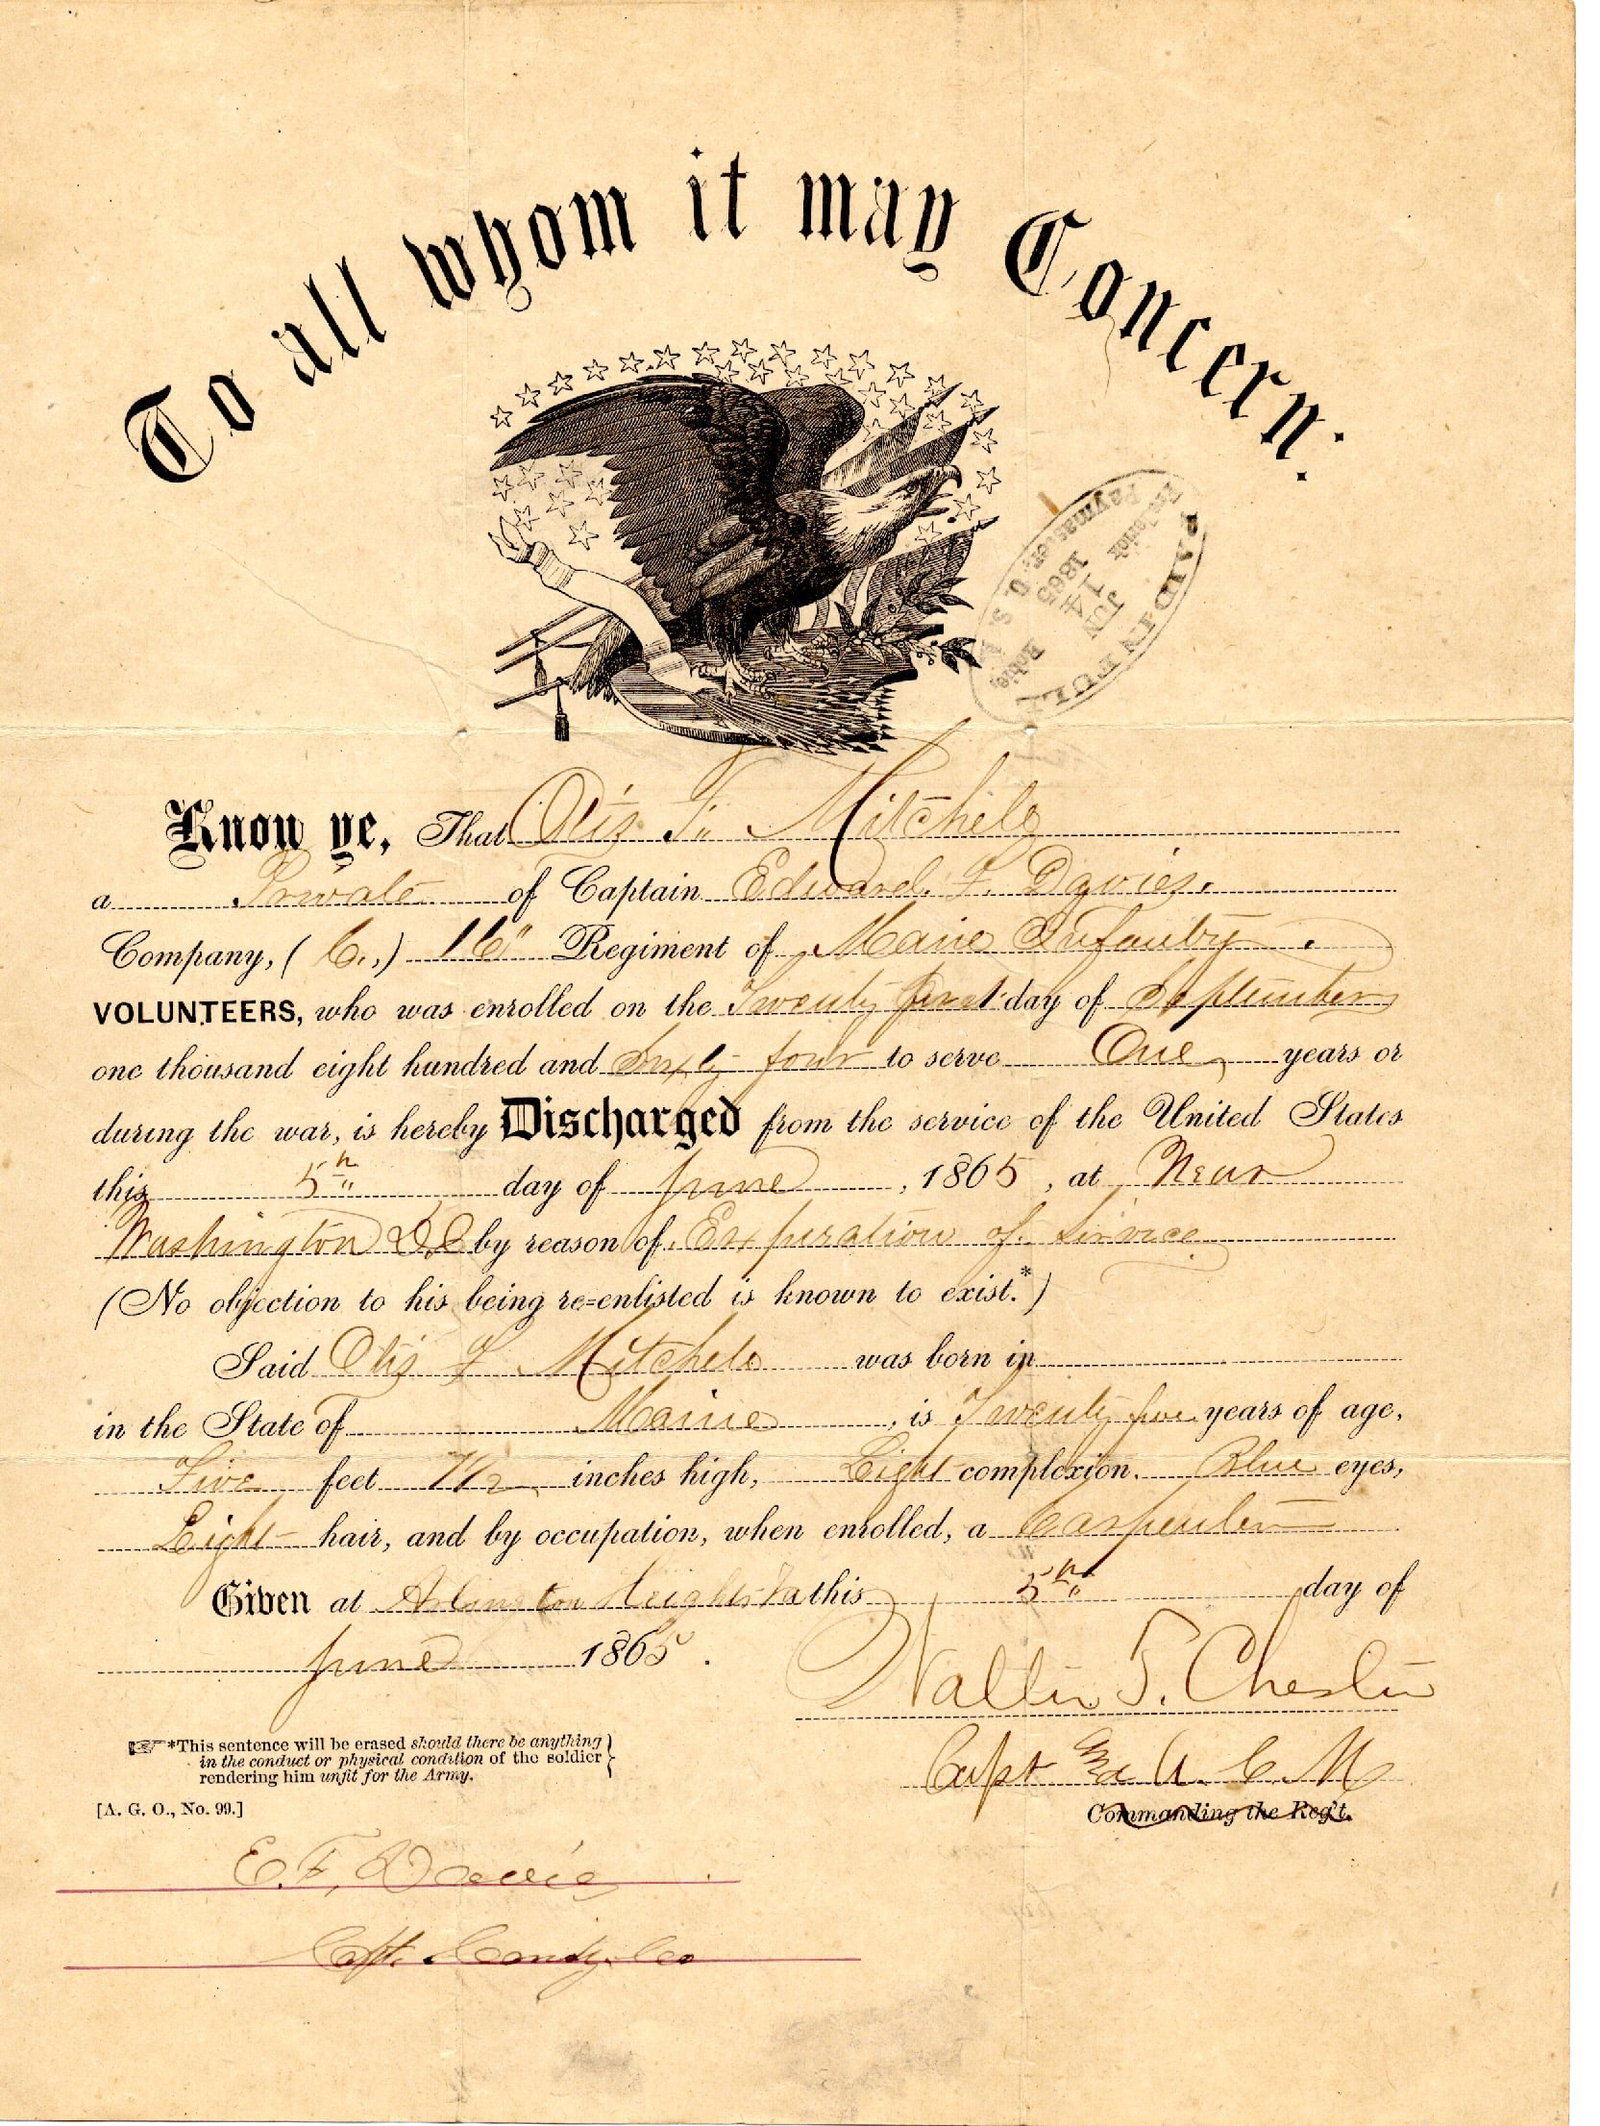 To all whom it may Concern:
PAID IN FULL
JUN
14
1865
Frederick Robie,
Paymaster, U. S. A.
Know ye, That Otis F. Mitchell
a Private of Captain Edward. F. Davies.
Company, (C.,) 16" Regiment of Maine Infantry.
VOLUNTEERS, who was enrolled on the Twenty first day of September
one thousand eight hundred and Sixty four to serve One years or
during the war, is hereby Discharged from the service of the United States
this 5th day of June, 1865, at Near
Washington D.C by reason of Expiration of Service
(No objection to his being re=enlisted is known to exist.*)
Said Otis F Mitchell was born in
in the State of Maine, is Twenty five years of age,
Five feet 7 1/2 inches high, Light complexion. Blue eyes,
Light hair, and by occupation, when enrolled, a Carpenter
Given at Arlington Heights Va this 5th day of
June 1865.
Walter T. Chester
Capt & A. C. M
Commanding the Reg't.
☞*This sentence will be erased should there be anything
in the conduct or physical condition of the soldier
rendering him unfit for the Army.
[A. G. O., No. 99.]
E. F. Davies
Capt. Comdg. Co